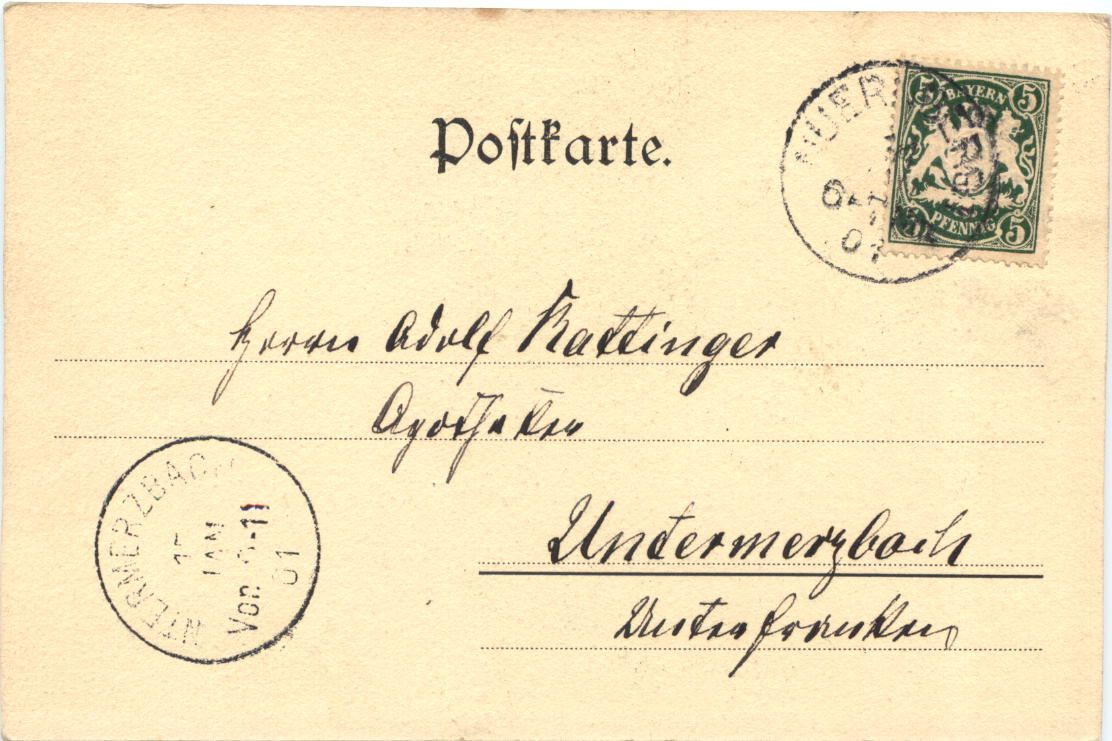 Postkarte.
5 BAYERN 5
PFENNIG 5
01
Herrn Adolf Rattinger
Apotheker
Untermerzbach
Unterfranken
NTERMERZBACH
JAN
01